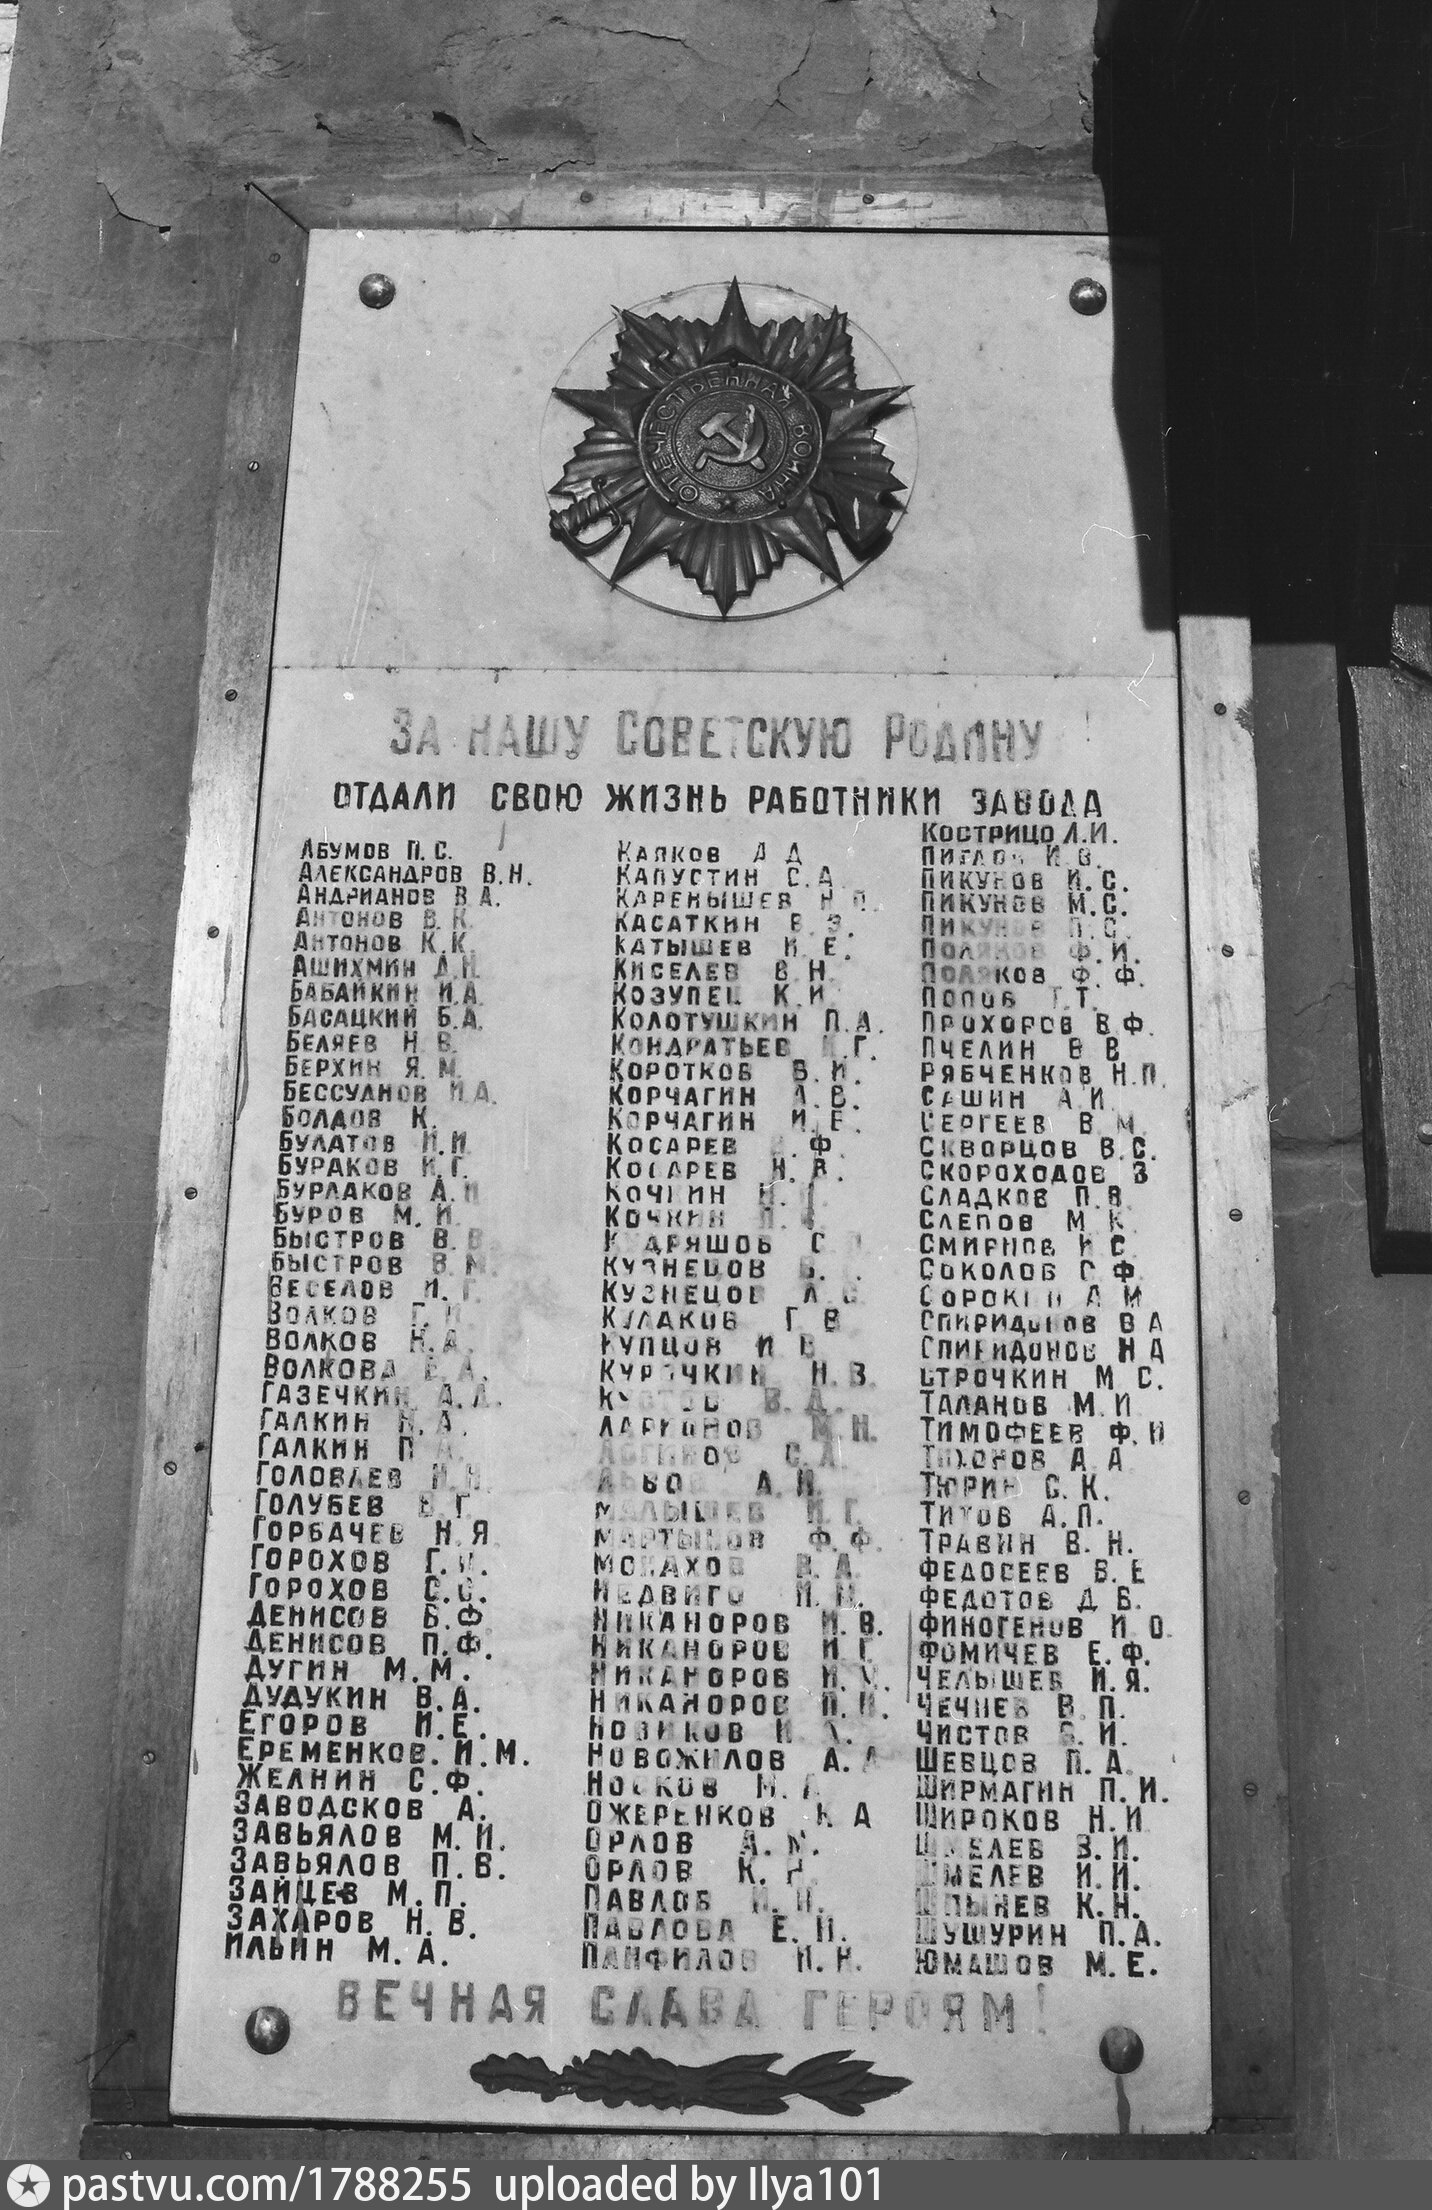 ОТЕЧЕСТВЕННАЯ ВОЙНА
ЗА НАШУ СОВЕТСКУЮ РОДИНУ !
ОТДАЛИ СВОЮ ЖИЗНЬ РАБОТНИКИ ЗАВОДА
АБУМОВ П. С.
АЛЕКСАНДРОВ В. Н.
АНДРИАНОВ В А.
АНТОНОВ В. К.
АНТОНОВ К. К.
АШИХМИН Д. Н.
БАБАЙКИН И. А.
БАСАЦКИЙ Б. А.
БЕЛЯЕВ Н В.
БЕРХИН Я. М.
БЕССУДНОВ И. А.
БОЛДОВ К.
БУЛАТОВ И. И
БУРАКОВ И. Г.
БУРЛАКОВ А. И
БУРОВ М. И.
БЫСТРОВ В. В
БЫСТРОВ В. М.
ВЕСЕЛОВ И. Г.
ВОЛКОВ Г.
ВОЛКОВ Н. А.
ВОЛКОВА Е. А.
ГАЗЕЧКИН А. Д.
ГАЛКИН Н. А.
ГАЛКИН П А.
ГОЛОВАЕВ Н. Н.
ГОЛУБЕВ В. Г.
ГОРБАЧЕВ Н. Я.
ГОРОХОВ Г. И.
ГОРОХОВ С. С.
ДЕНИСОВ Б. Ф
ДЕНИСОВ П. Ф.
ДУГИН М. М.
ДУДУКИН В. А.
ЕГОРОВ И. Е.
ЕРЕМЕНКОВ. И. М.
ЖЕЛНИН С. Ф.
ЗАВОДСКОВ А.
ЗАВЬЯЛОВ М. И.
ЗАВЬЯЛОВ П. В.
ЗАЙЦЕВ М. П.
ЗАХАРОВ Н. В.
ИЛЬИН М. А.
КАПКОВ А Д
КАПУСТИН С. А.
КАРЕНЫШЕВ Н П.
КАСАТКИН В. Э.
КАТЫШЕВ И. Е.
КИСЕЛЕВ В. Н.
КОЗУПЕЦ К. И
КОЛОТУШКИН П. А.
КОНДРАТЬЕВ Г.
КОРОТКОВ В. И.
КОРЧАГИН А. В.
КОРЧАГИН И. Е.
КОСАРЕВ Ф.
КОСАРЕВ Н. В.
КОЧКИН
КОЧКИН
КУДРЯШОВ С
КУЗНЕЦОВ Б.
КУЗНЕЦОВ А С.
КУЛАКОВ Г В
КУПЦОВ И В
КУРОЧКИН Н. В.
В. А.
ЛАРИОНОВ М. Н.
ЛОГИНОВ С. А.
ЛЬВОВ А. Н.
МАЛЫШЕВ И. Г.
МАРТЫНОВ Ф. Ф.
МОНАХОВ В. А.
НЕДВИГО И. Н.
НИКАНОРОВ И. В.
НИКАНОРОВ И. Г
НИКАНОРОВ
НИКАНОРОВ П. И.
НОВИКОВ И
НОВОЖИЛОВ А. А
НОСКОВ Н. А
ОЖЕРЕНКОВ К А
ОРЛОВ А. М.
ОРЛОВ К. Н.
ПАВЛОВ И. И.
ПАВЛОВА Е. П.
ПАНФИЛОВ И. Н.
КОСТРИЦО Л. И.
ПИГЛОВ И. В.
ПИКУНОВ И. С.
ПИКУНОВ М. С.
ПИКУНОВ П. С.
ПОЛЯКОВ Ф. И.
ПОЛЯКОВ Ф. Ф.
ПОПОВ Т.
ПРОХОРОВ В. Ф.
ПЧЕЛИН В В
РЯБЧЕНКОВ Н. П.
САШИН А. И
СЕРГЕЕВ В. М.
СКВОРЦОВ В. С.
СКОРОХОДОВ З
СЛАДКОВ П. В.
СЛЕПОВ М. К.
СМИРНОВ И С.
СОКОЛОВ С Ф.
СОРОКИН А М
СПИРИДОНОВ В А
СПИРИДОНОВ Н А
СТРОЧКИН М С.
ТАЛАНОВ М. И
ТИМОФЕЕВ Ф. И
ТИХОНОВ А. А
ТЮРИН С. К.
ТИТОВ А. П.
ТРАВИН В. Н.
ФЕДОСЕЕВ В. Е
ФЕДОТОВ Д В.
ФИНОГЕНОВ И О.
ФОМИЧЕВ Е. Ф.
ЧЕЛЫШЕВ И. Я.
ЧЕЧНЕВ В. П.
ЧИСТОВ В. И.
ШЕВЦОВ П. А.
ШИРМАГИН П. И.
ШИРОКОВ Н. И
ШМЕЛЕВ В. И.
ШМЕЛЕВ И. И.
ШПЫНЕВ К. Н.
ШУШУРИН П. А.
ЮМАШОВ М. Е.
ВЕЧНАЯ СЛАВА ГЕРОЯМ!
pastvu.com/1788255 uploaded by Ilya101